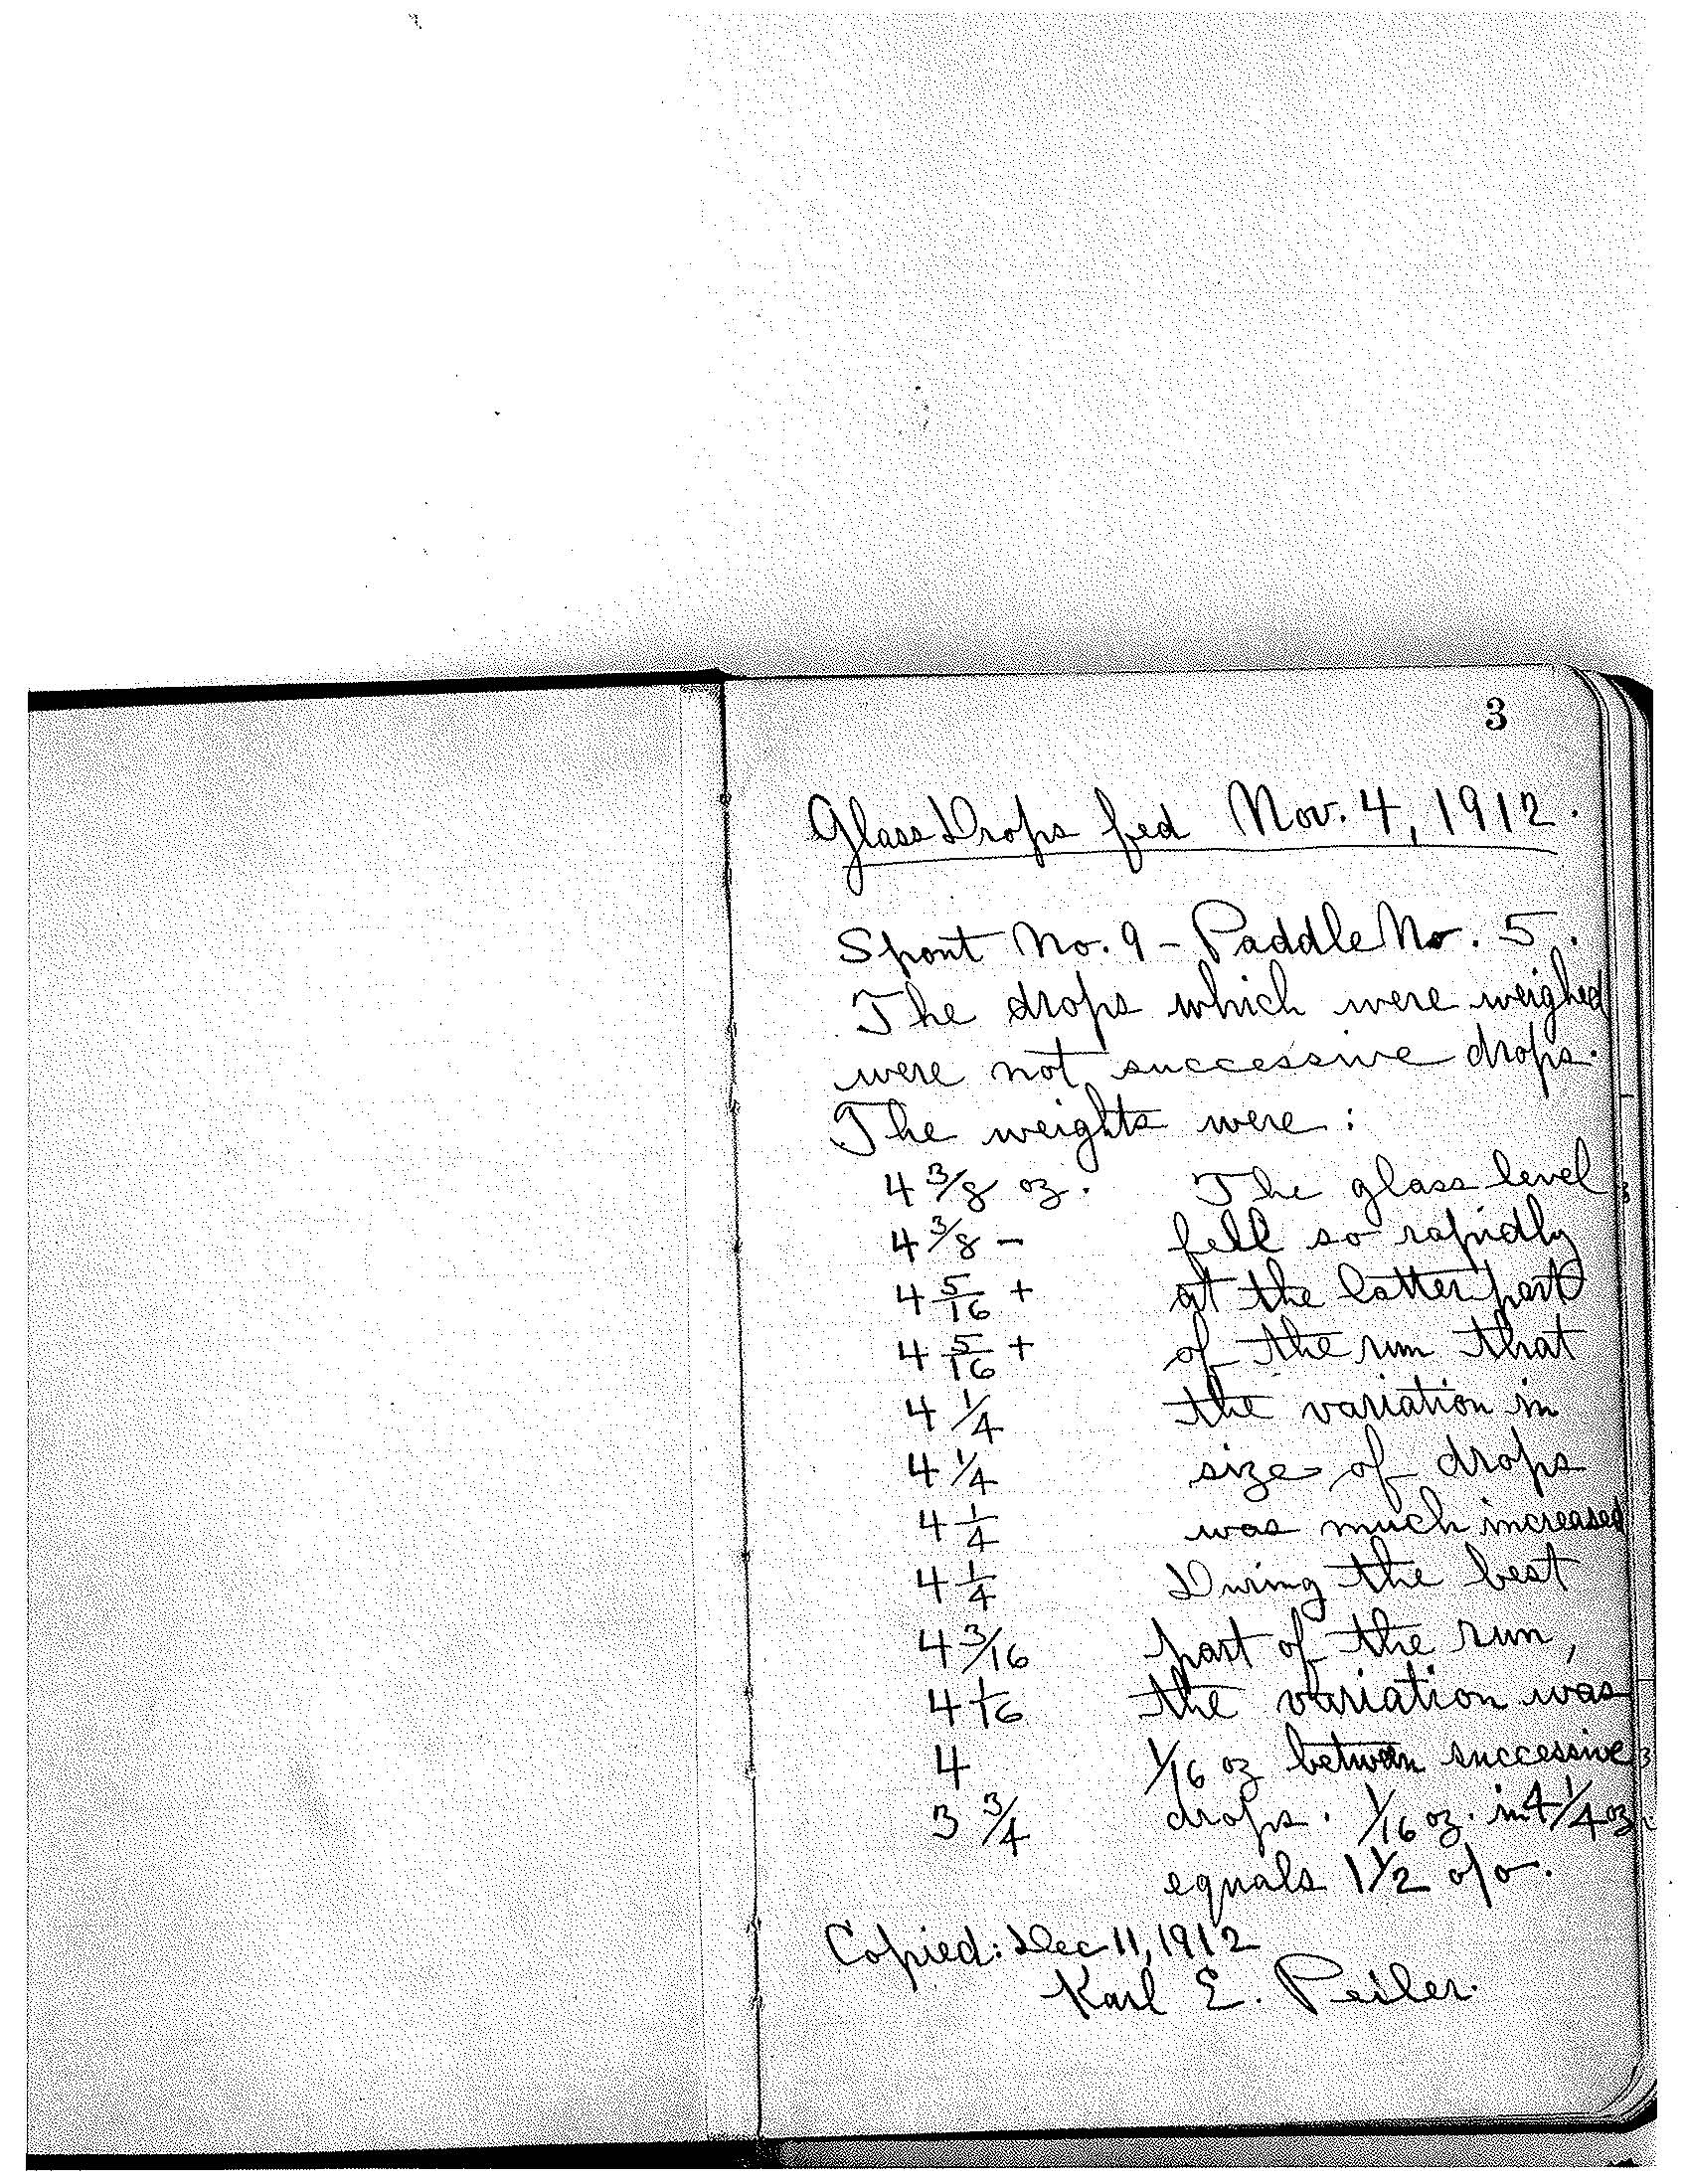 3
Glass Drops fed Nov. 4, 1912.
Spout No. 9 - Paddle No. 5.
The drops which were weighed
were not successive drops.
The weights were:
4 3/8 oz. The glass level
4 3/8 - fell so rapidly
4 5/16 + at the latter part
4 5/16 + of the run that
4 1/4 the variation in
4 1/4 size of drops
4 1/4 was much increased
4 1/4 During the best
4 3/16 part of the run,
4 1/16 the variation was
4 1/16 oz between successive
3 3/4 drops. 1/16 oz. in 4 1/4 oz.
equals 1 1/2 o/o.
Copied: Dec 11, 1912
Karl E. Peiler.